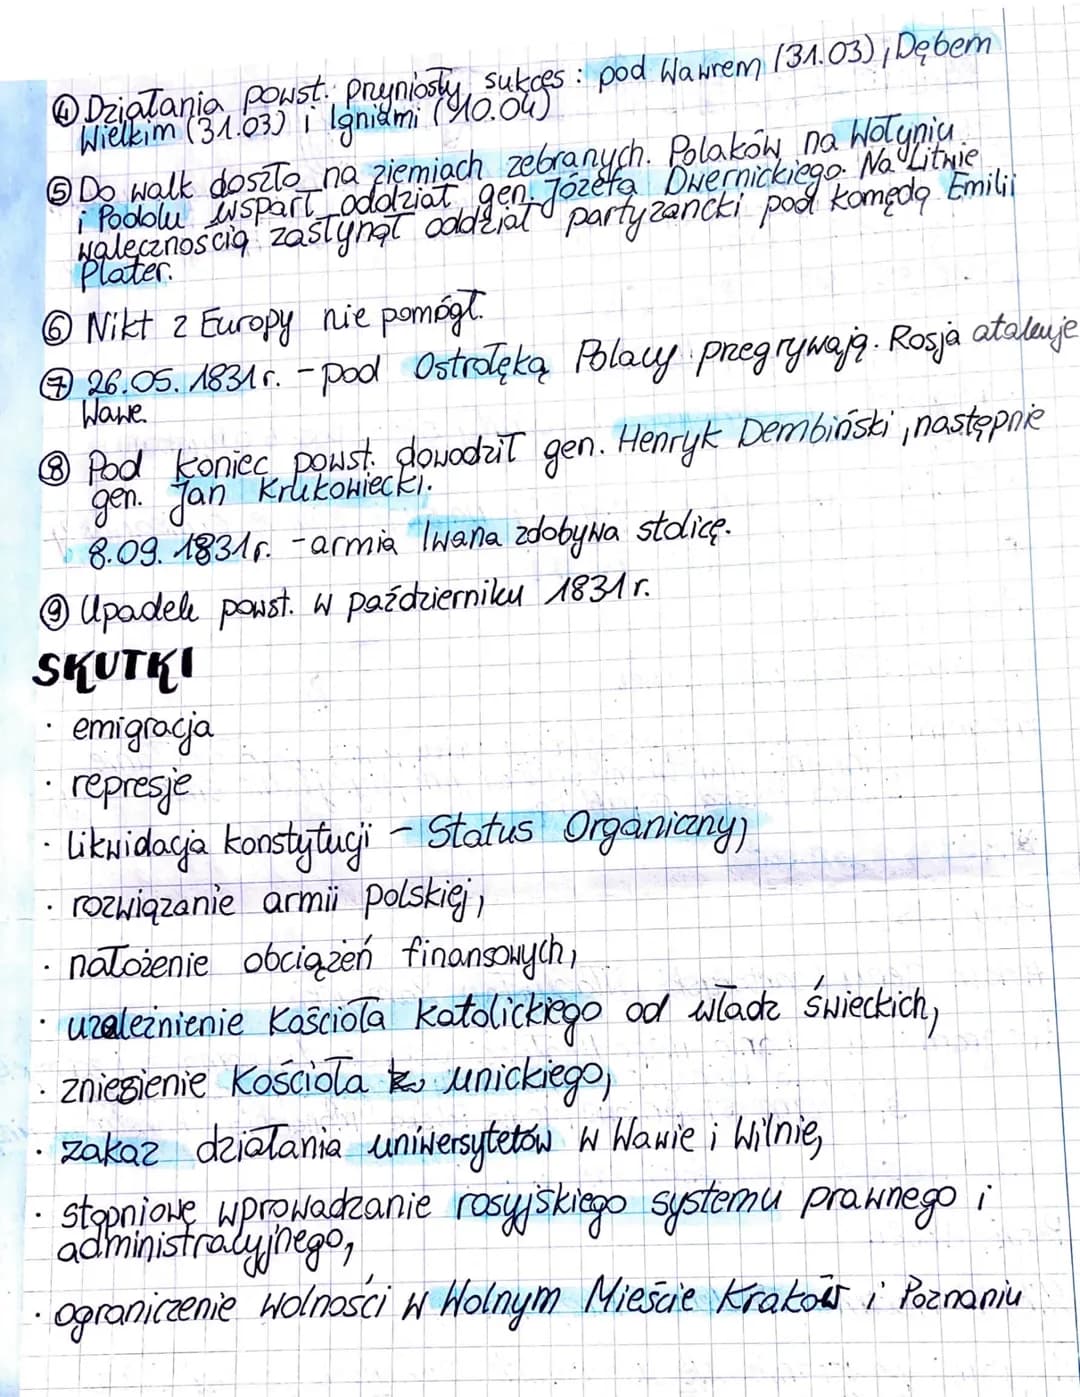 ④ Działania powst. pryniosły sukces: pod Wawrem (31.03), Dębem
Wielkim (31.03) i Igniami (10.04)
⑤ Do walk doszło na ziemiach zebranych. Polaków na Wołyniu
i Podolu wsparł oddział gen. Józefa Dwernickiego. Na Litwie
walecznością zasłynął oddział partyzancki pod komędą Emilii
Plater.
⑥ Nikt z Europy nie pomógł.
⑦ 26.05.1831r. - pod Ostrołęką Polacy przegrywają. Rosja atakuje
Wawe.
⑧ Pod koniec powst. dowodził gen. Henryk Dembiński, następnie
gen. Jan Krukowiecki.
8.09.1831r. - armia Iwana zdobywa stolicę.
⑨ Upadek powst. w październiku 1831r.
SKUTKI
· emigracja
· represje
· likwidacja konstytucji - Status Organiczny,
· rozwiązanie armii Polskiej,
· nałożenie obciążeń finansowych,
· uzależnienie Kościoła katolickiego od władz świeckich,
· zniesienie Kościoła unickiego,
· zakaz działania uniwersytetów w Wawie i Wilnie,
· stopniowe wprowadzanie rosyjskiego systemu prawnego i
administracyjnego,
· ograniczenie wolności w Wolnym Mieście Kraków i Poznaniu